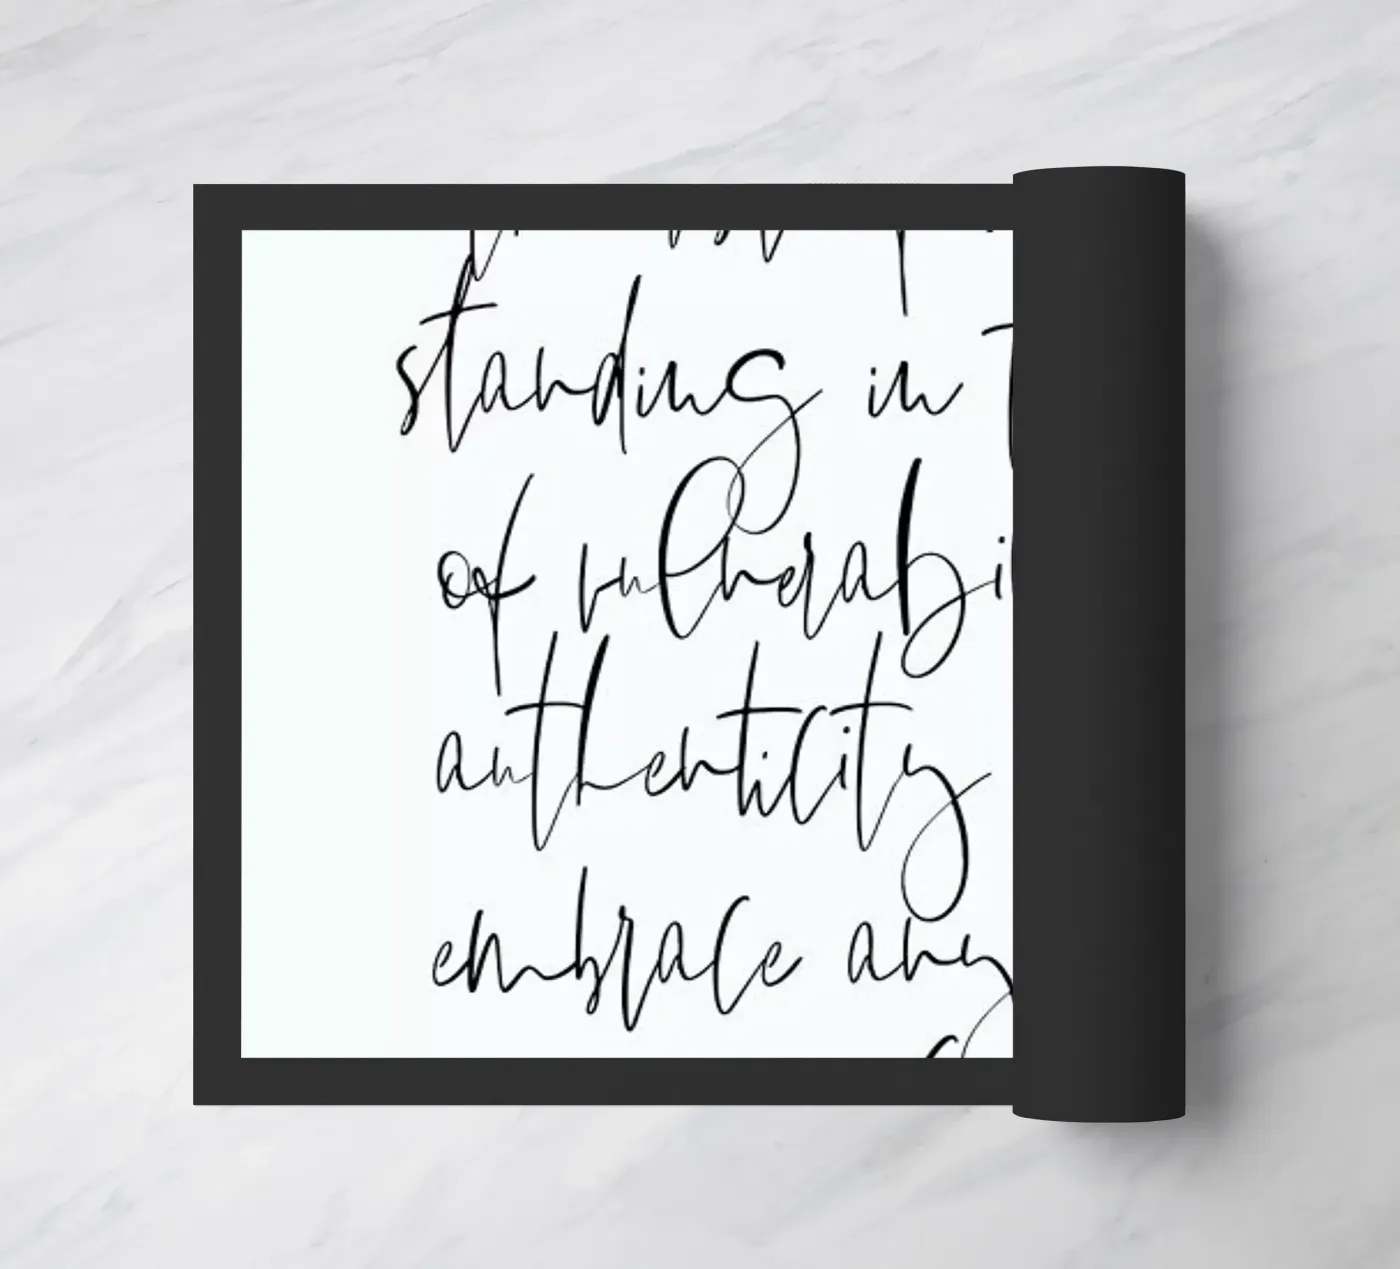 standing in
of vulnerabi
authenticity
embrace any